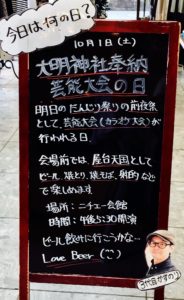 今日は何の日？
10月1日(土)
大明神社奉納
芸能大会の日
明日のだんじり祭りの前夜祭
として、芸能大会(カラオケ大会)が
行われる日。
会場前では、屋台天国として
ビール、焼とり、焼そば、射的などで
楽しめます
場所：ニチエー会館
時間：午後5:30開演
ビール飲みに行こうかな…
Love Beer
3代目かずのり